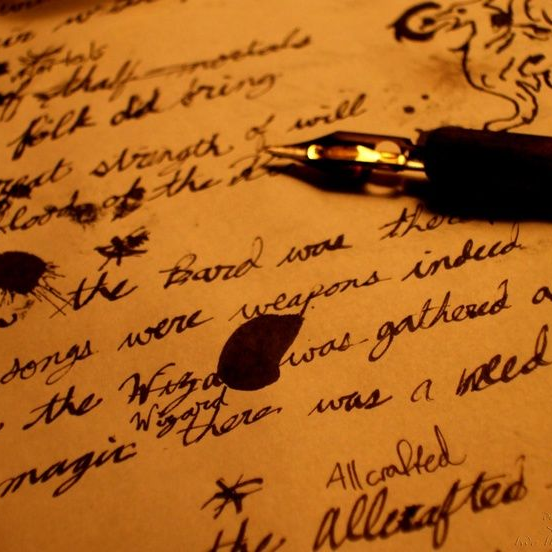 mortals
of that mortals
folk did bring
great strength of will
blood of the
the Bard was there
songs were weapons indeed
the Wiza was gathered a
Wizard
magic there was a need
Allcrafted
the allcrafted